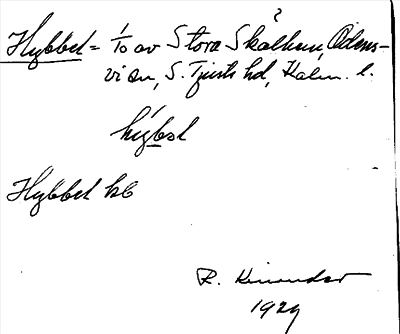 ?
Hybbel = 1/10 av Stora Skälhem, Odens-
vi sn, S. Tjusts hd, Kalm. l.
hýbəl
Hybbel kb
R. Kinander
1929